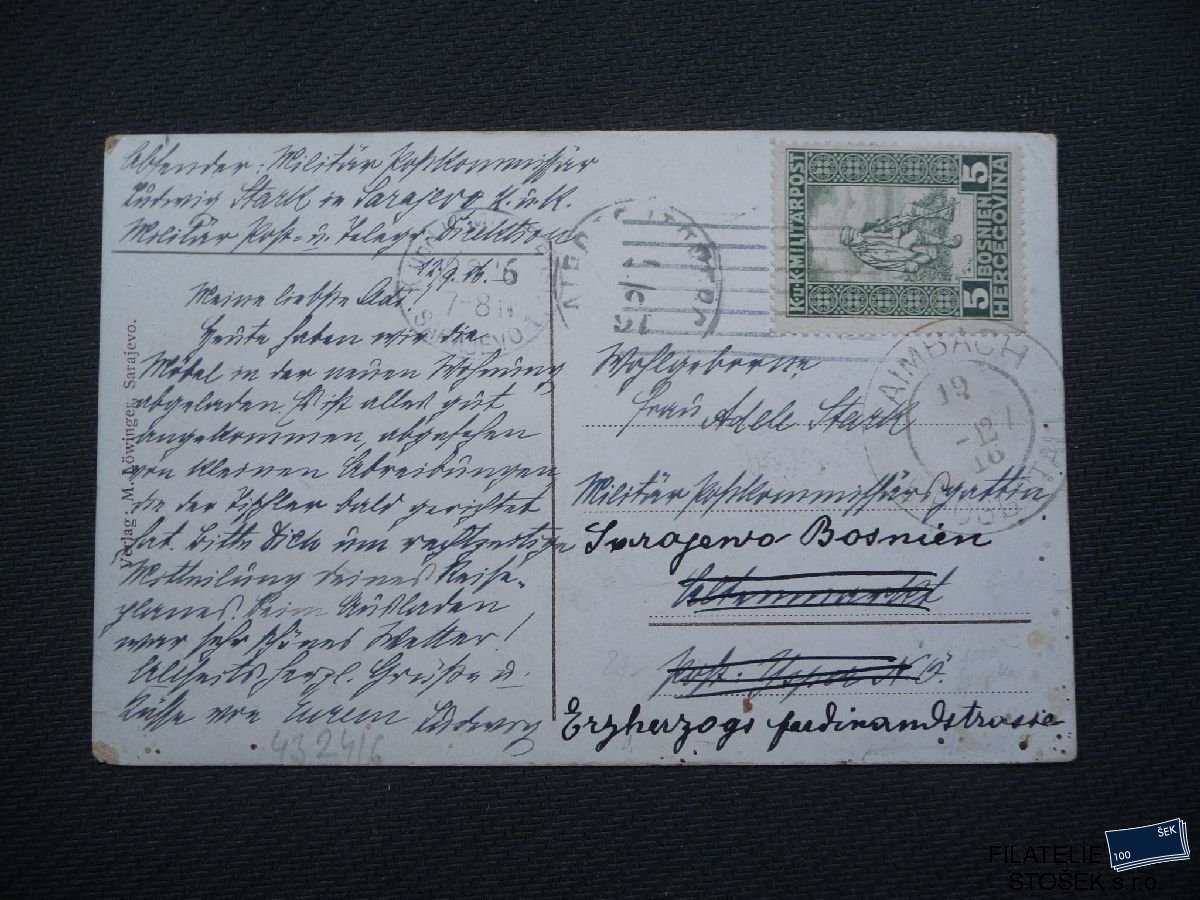 Absender: Militär Postkommissär
Ludwig Stark in Sarajevo K. u. K.
Militär Post- u. Telegr. Direktion
12/9. 16.
Meine liebste
Heute haben wir die
Möbel in der neuen Wohnung
abgeladen. Es ist alles gut
angekommen, abgesehen
von kleinen Abreibungen
die der Tischler bald gerichtet
hat. Bitte Dich um rechtzeitige
Mitteilung deines Reise-
planes. Beim Ausladen
war sehr schönes Wetter!
Allseits herzl. Grüße u.
Küsse von Eurem Ludwig
Verlag M. Löwinger, Sarajevo.
K.u.K. MILITÄRPOST
5 BOSNIEN 5
HERCEGOVINA
7-8
SARAJEVO 1
RAIMBACH
12
16
Wohlgeborne
Frau Adele Stark
Militär Postkommissärsgattin
Sarajewo Bosnien
Altenmarkt
Post. Ysper N.Ö.
Erzherzogs ferdinandstrasse
4324/6
100 ŠEK
FILATELIE
STOŠEK s.r.o.